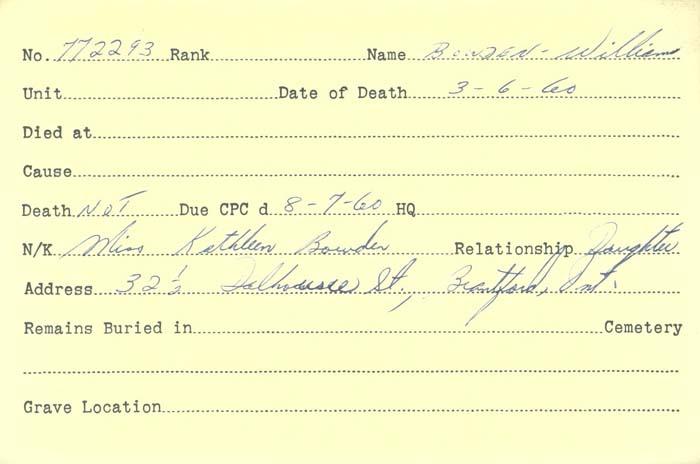 No. 772293 Rank Name Bowden - William
Unit Date of Death 3-6-60
Died at
Cause
Death NOT Due CPC d 8-7-60 HQ
N/K Miss Kathleen Bowden Relationship Daughter
Address 32½ Dalhousie St., Brantford, Ont.
Remains Buried in Cemetery
Grave Location